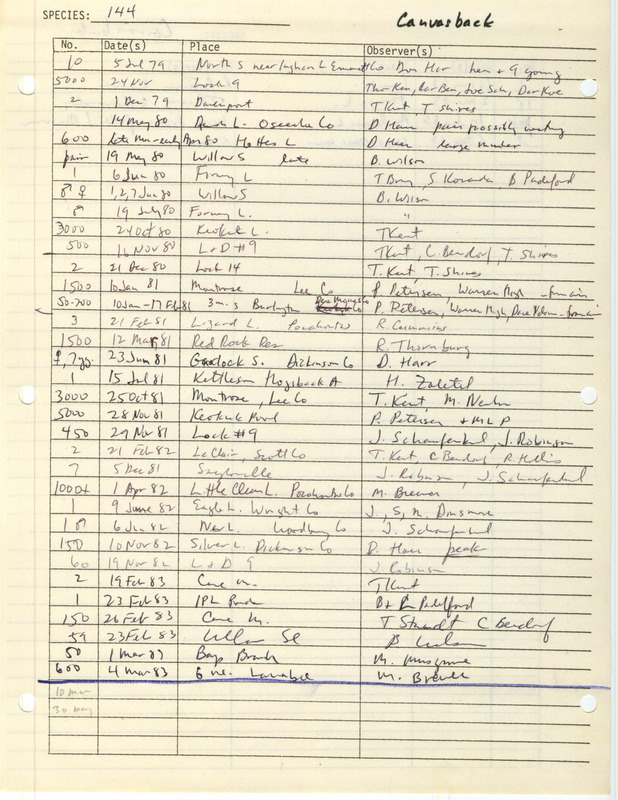 SPECIES: 144 Canvasback
No. Date(s) Place Observer(s)
10 5 Jul 79 North S near Ingham L Emmet Co Don Harr hen + 9 young
5000 24 Nov Lock 9
2 1 Dec 79 Davenport T Kent T Shires
14 May 80 L. Osceola Co D Harr pair possibly nesting
600 late Mar-early Apr 80 D Harr large number
pair 19 May 80 Willow S late B. Wilson
1 6 Jun 80 T Bray, S. Kovanda B Padelford
♂ ♀ 1,2,7 Jun 80 Willow S B. Wilson
♂ 19 July 80 L. "
3000 24 Oct 80 Keokuk L. T Kent
500 16 Nov 80 L+D #9 T Kent, C. Bendorf, T. Shires
2 21 Dec 80 Lock 14 T. Kent T. Shires
1500 10 Jan 81 Montrose Lee Co P. Petersen
50-700 10 Jan - 17 Feb 81 3 mi. S Burlington Des Moines Co P. Petersen,
3 21 Feb 81 Lizard L. Pocahontas R. Cummins
1500 12 Mar 81 Red Rock Res R. Thornburg
♀, 7 yg. 23 Jun 81 Garlock S. Dickinson Co D. Harr
1 15 Jul 81 Kettleson Hogsback A H. Zaletel
3000 25 Oct 81 Montrose, Lee Co T. Kent M. Newlon
5000 28 Nov 81 Keokuk Pool P. Petersen + MLP
450 29 Nov 81 Lock #9 J. Schaufenbuel, J. Robinson
2 21 Feb 82 LeClaire, Scott Co T. Kent C Bendorf, R. Hollis
7 5 Dec 81 Saylorville J. Robinson, J. Schaufenbuel
1000+ 1 Apr 82 Little Clear L. Pocahontas Co M. Brewer
1 9 June 82 Eagle L. Wright Co J., S, M. Dinsmore
1 ♂ 6 Jun 82 New L. Woodbury Co J. Schaufenbuel
150 10 Nov 82 Silver L. Dickinson Co D. Harr peak
60 19 Nov 82 L + D 9 J. Robinson
2 19 Feb 83 Cone M. T Kent
1 23 Feb 83 IPL Ponds B + L Padelford
150 26 Feb 83 Cone M. T Staudt C Bendorf
59 23 Feb 83 Willow Sl B Wilson
50 1 Mar 83 Bays Branch M. Musgrove
600 4 Mar 83 M. Brewer
10 mar
30 may